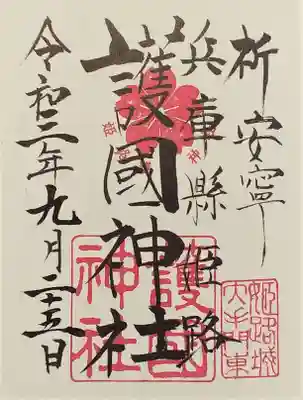 祈安寧
兵庫縣姫路
護國神社
令和三年九月二十五日
護國
神社
姫路城
大手門東